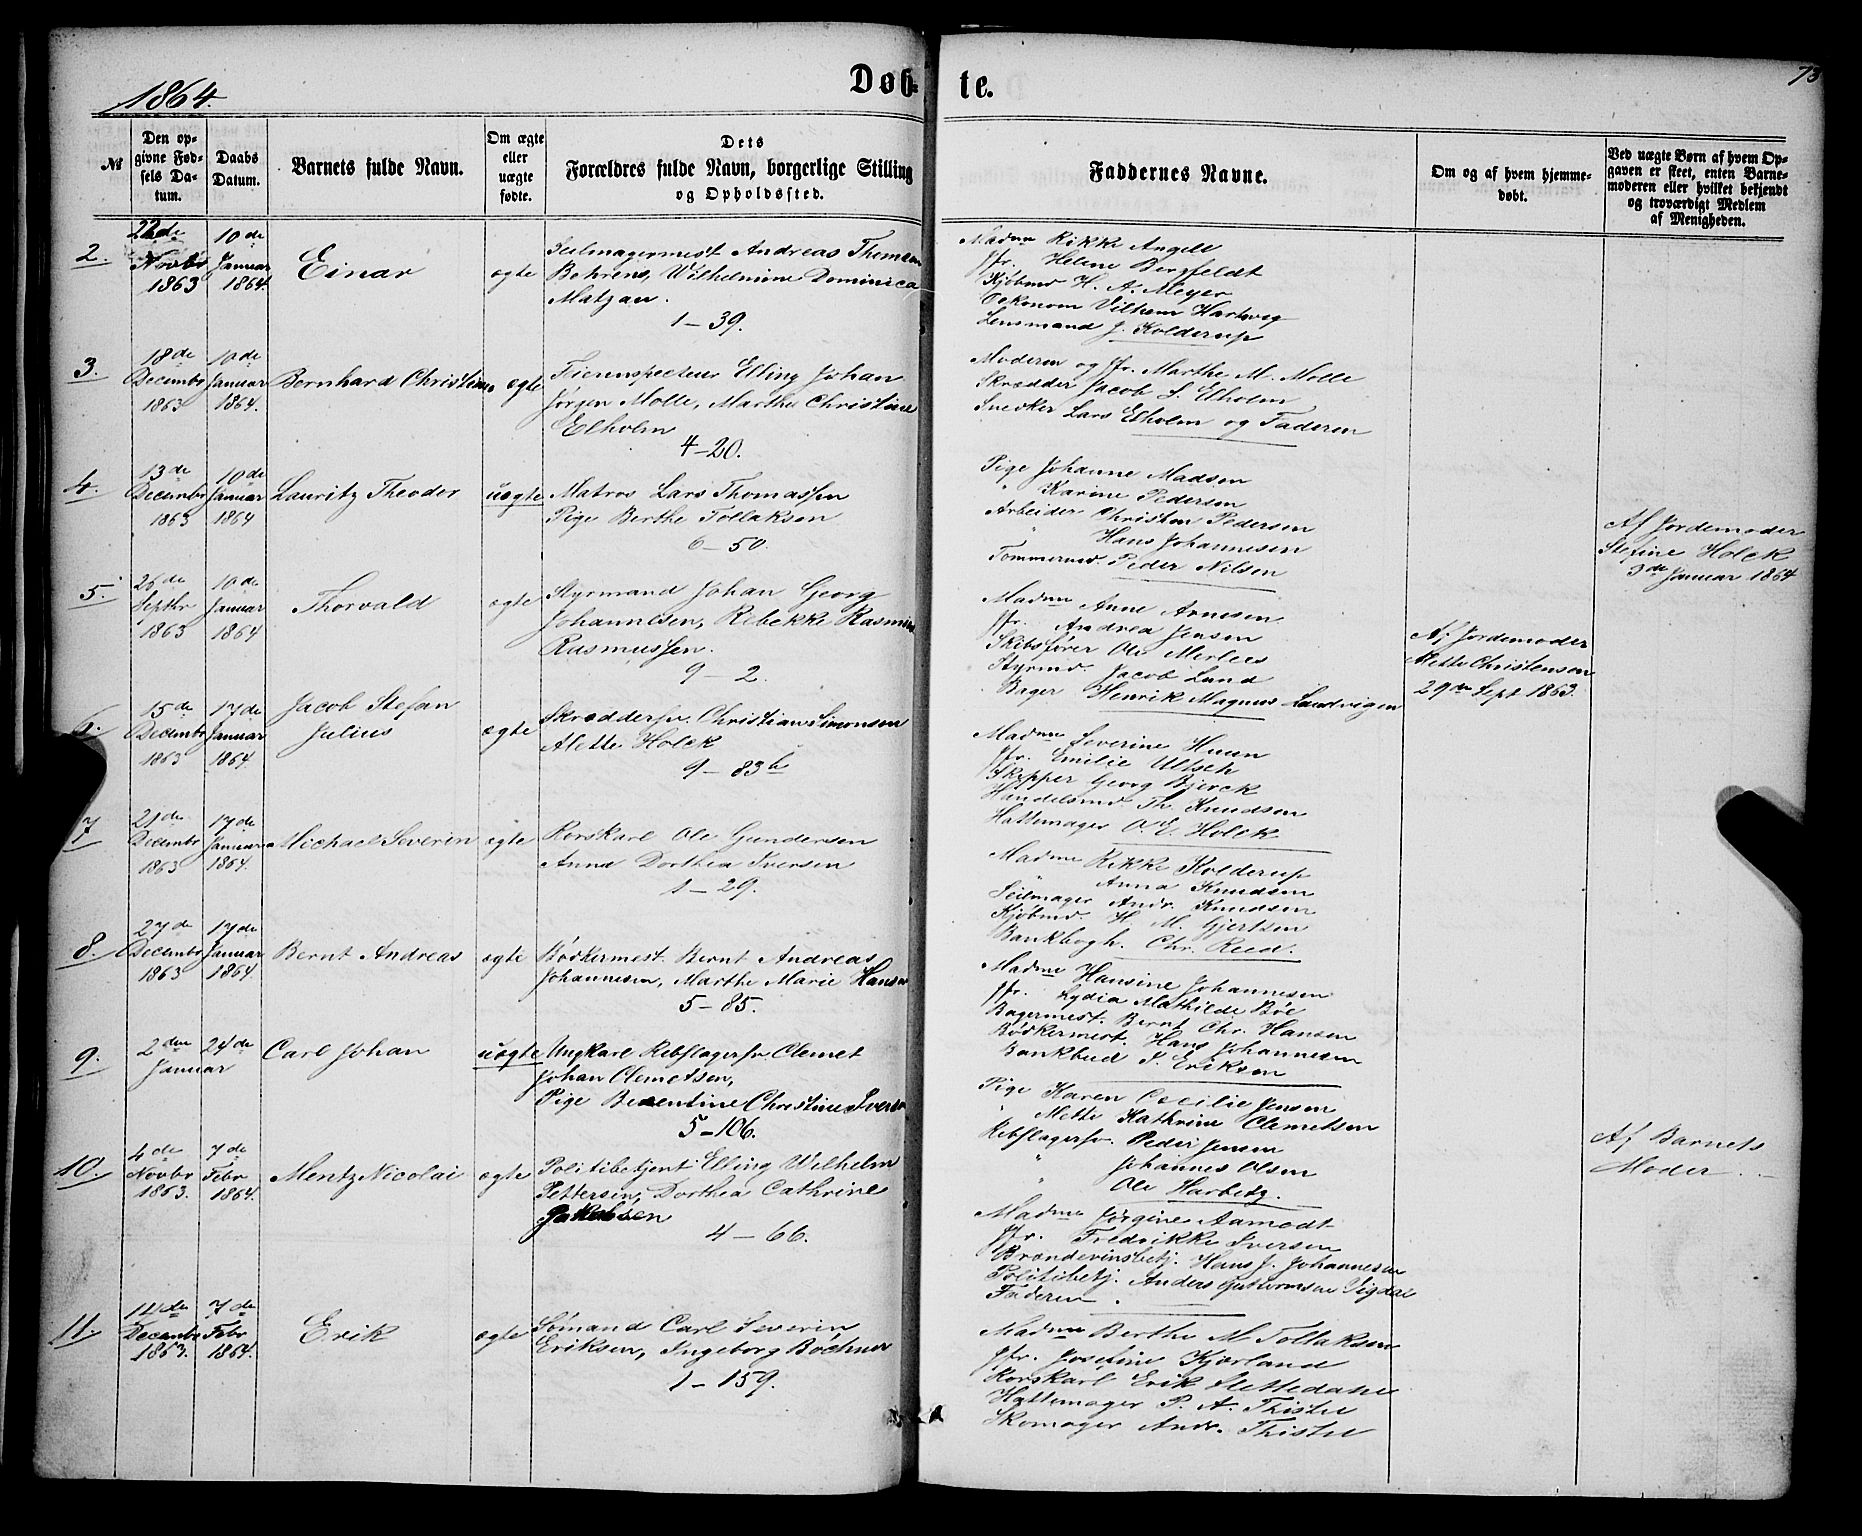 1864.
Døb-
te.
73
№
Den op-
givne Fød-
sels Da-
tum.
Daabs
Datum.
Barnets fulde Navn.
Om ægte
eller
uægte
fødte.
Dets
Forældres fulde Navn, borgerlige Stilling
og Opholdssted.
Faddernes Navne.
Om og af hvem hjemme-
døbt.
Ved uægte Børn af hvem Op-
gaven er skeet, enten Barne-
moderen eller hvilket bekjendt
og troværdigt Medlem
af Menigheden.
2.
22de
Novbr
1863
10de
Januar
1864.
Einar
ægte
Seilmagermest Andreas Thomsen
Behrens, Wilhelmine Dominica
Matzau.
1-39.
Madme Rikke Angell
Jfr. Helene Bergfeldt
Kjøbmd H. A. Meyer
Oekonom Vilhem Hartwig
Lensmand J. Kolderup
3.
18de
Decembr
1863
10de
Januar
1864.
Bernhard Christian
ægte
Elling Johan
Jørgen Molle, Marthe Christine
Elholm
4-20.
Moderen og Jfr. Marthe M. Molle
Skrædder Jacob S. Elholm
Snedker Lars Elholm og Faderen
4.
13de
Decembr
1863
10de
Januar
1864
Lauritz Theodor
uægte
Matros Lars Thomassen
Pige Berthe Tollaksen
6-50.
Pige Johanne Madsen
" Karine Pedersen
Arbeider Christen Pedersen
" Hans Johannesen
Tømmermd. Peder Nilsen
Af Jordemoder
Stefine Holck
3de Januar 1864
5.
26de
Septbr
1863
10de
Januar
1864
Thorvald
ægte
Styrmand Johan Georg
Johannesen, Rebekke Rasmine
Rasmussen.
9-2.
Madme Anne Arnesen
Jfr. Andrea Jensen
Skibsfører Ole Merlees
Styrmd. Jacob Lund
Bager Henrik Magnus Landvigen
Af Jordemoder
Mette Christensen
29de Sept 1863.
6.
15de
Decembr
1863
17de
Januar
1864.
Jacob Stefan
Julius
ægte
Skræddersv. Christian Simonsen
Alette Holck
9-83b
Madme Severine Huun
Jfr. Emilie Ultsch
Skipper Georg Bjerck
Handelsmd Th. Knudsen
Hattemager O. E. Holck
7
21de
Decembr
1863
17de
Januar
1864.
Michael Severin
ægte
Rorskarl Ole Gundersen
Anna Dorthea Iversen
1-29.
Madme Rikke Kolderup
" Anna Knudsen
Seilmager Andr. Knudsen
Kjøbmd. H. M. Gjertsen
Bankbogh. Chr. Reed.
8.
27de
Decembr
1863
17de
Januar
1864.
Bernt Andreas
ægte
Bødkermest. Bernt Andreas
Johannesen, Marthe Marie Hansen
5-85.
Madme Hansine Johannesen
Jfr. Lydia Mathilde Bøe
Bagermest. Bernt Chr. Hansen
Bødkermest. Hans Johannesen
Bankbud I. Eriksen
9.
2den
Januar
24de
Carl Johan
uægte
Ungkarl Rebslagersv. Clemet
Johan Clemetsen,
Pige Berentine Christine Iversen
5-106.
Pige Karen Cecilie Jensen
" Mette Kathrine Clemetsen
Rebslagersv. Peder Jensen
" Johannes Olsen
" Ole Harbitz.
Af Barnets
Moder
10.
4de
Novbr
1863.
7de
Febr
1864.
Mentz Nicolai
ægte
Politibetjent Elling Wilhelm
Pettersen, Dorthea Cathrine
Jakobsen
4-66.
Madme Jørgine Aamodt
Jfr. Fredrikke Iversen
Brændevinsbetj. Hans J. Johannesen
Politibetj. Anders Guttormsen Vigdal
Faderen.
11.
14de
Decembr
1863.
7de
Febr
1864.
Erik
ægte
Sømand Carl Severin
Eriksen, Ingeborg Bøchner
1-159.
Madme Berthe M. Tollaksen
Jfr. Josefine Kjørland
Rorskarl Erik Slettedahl
Hattemager P. A. Thistel
Skomager Andr. Thistel